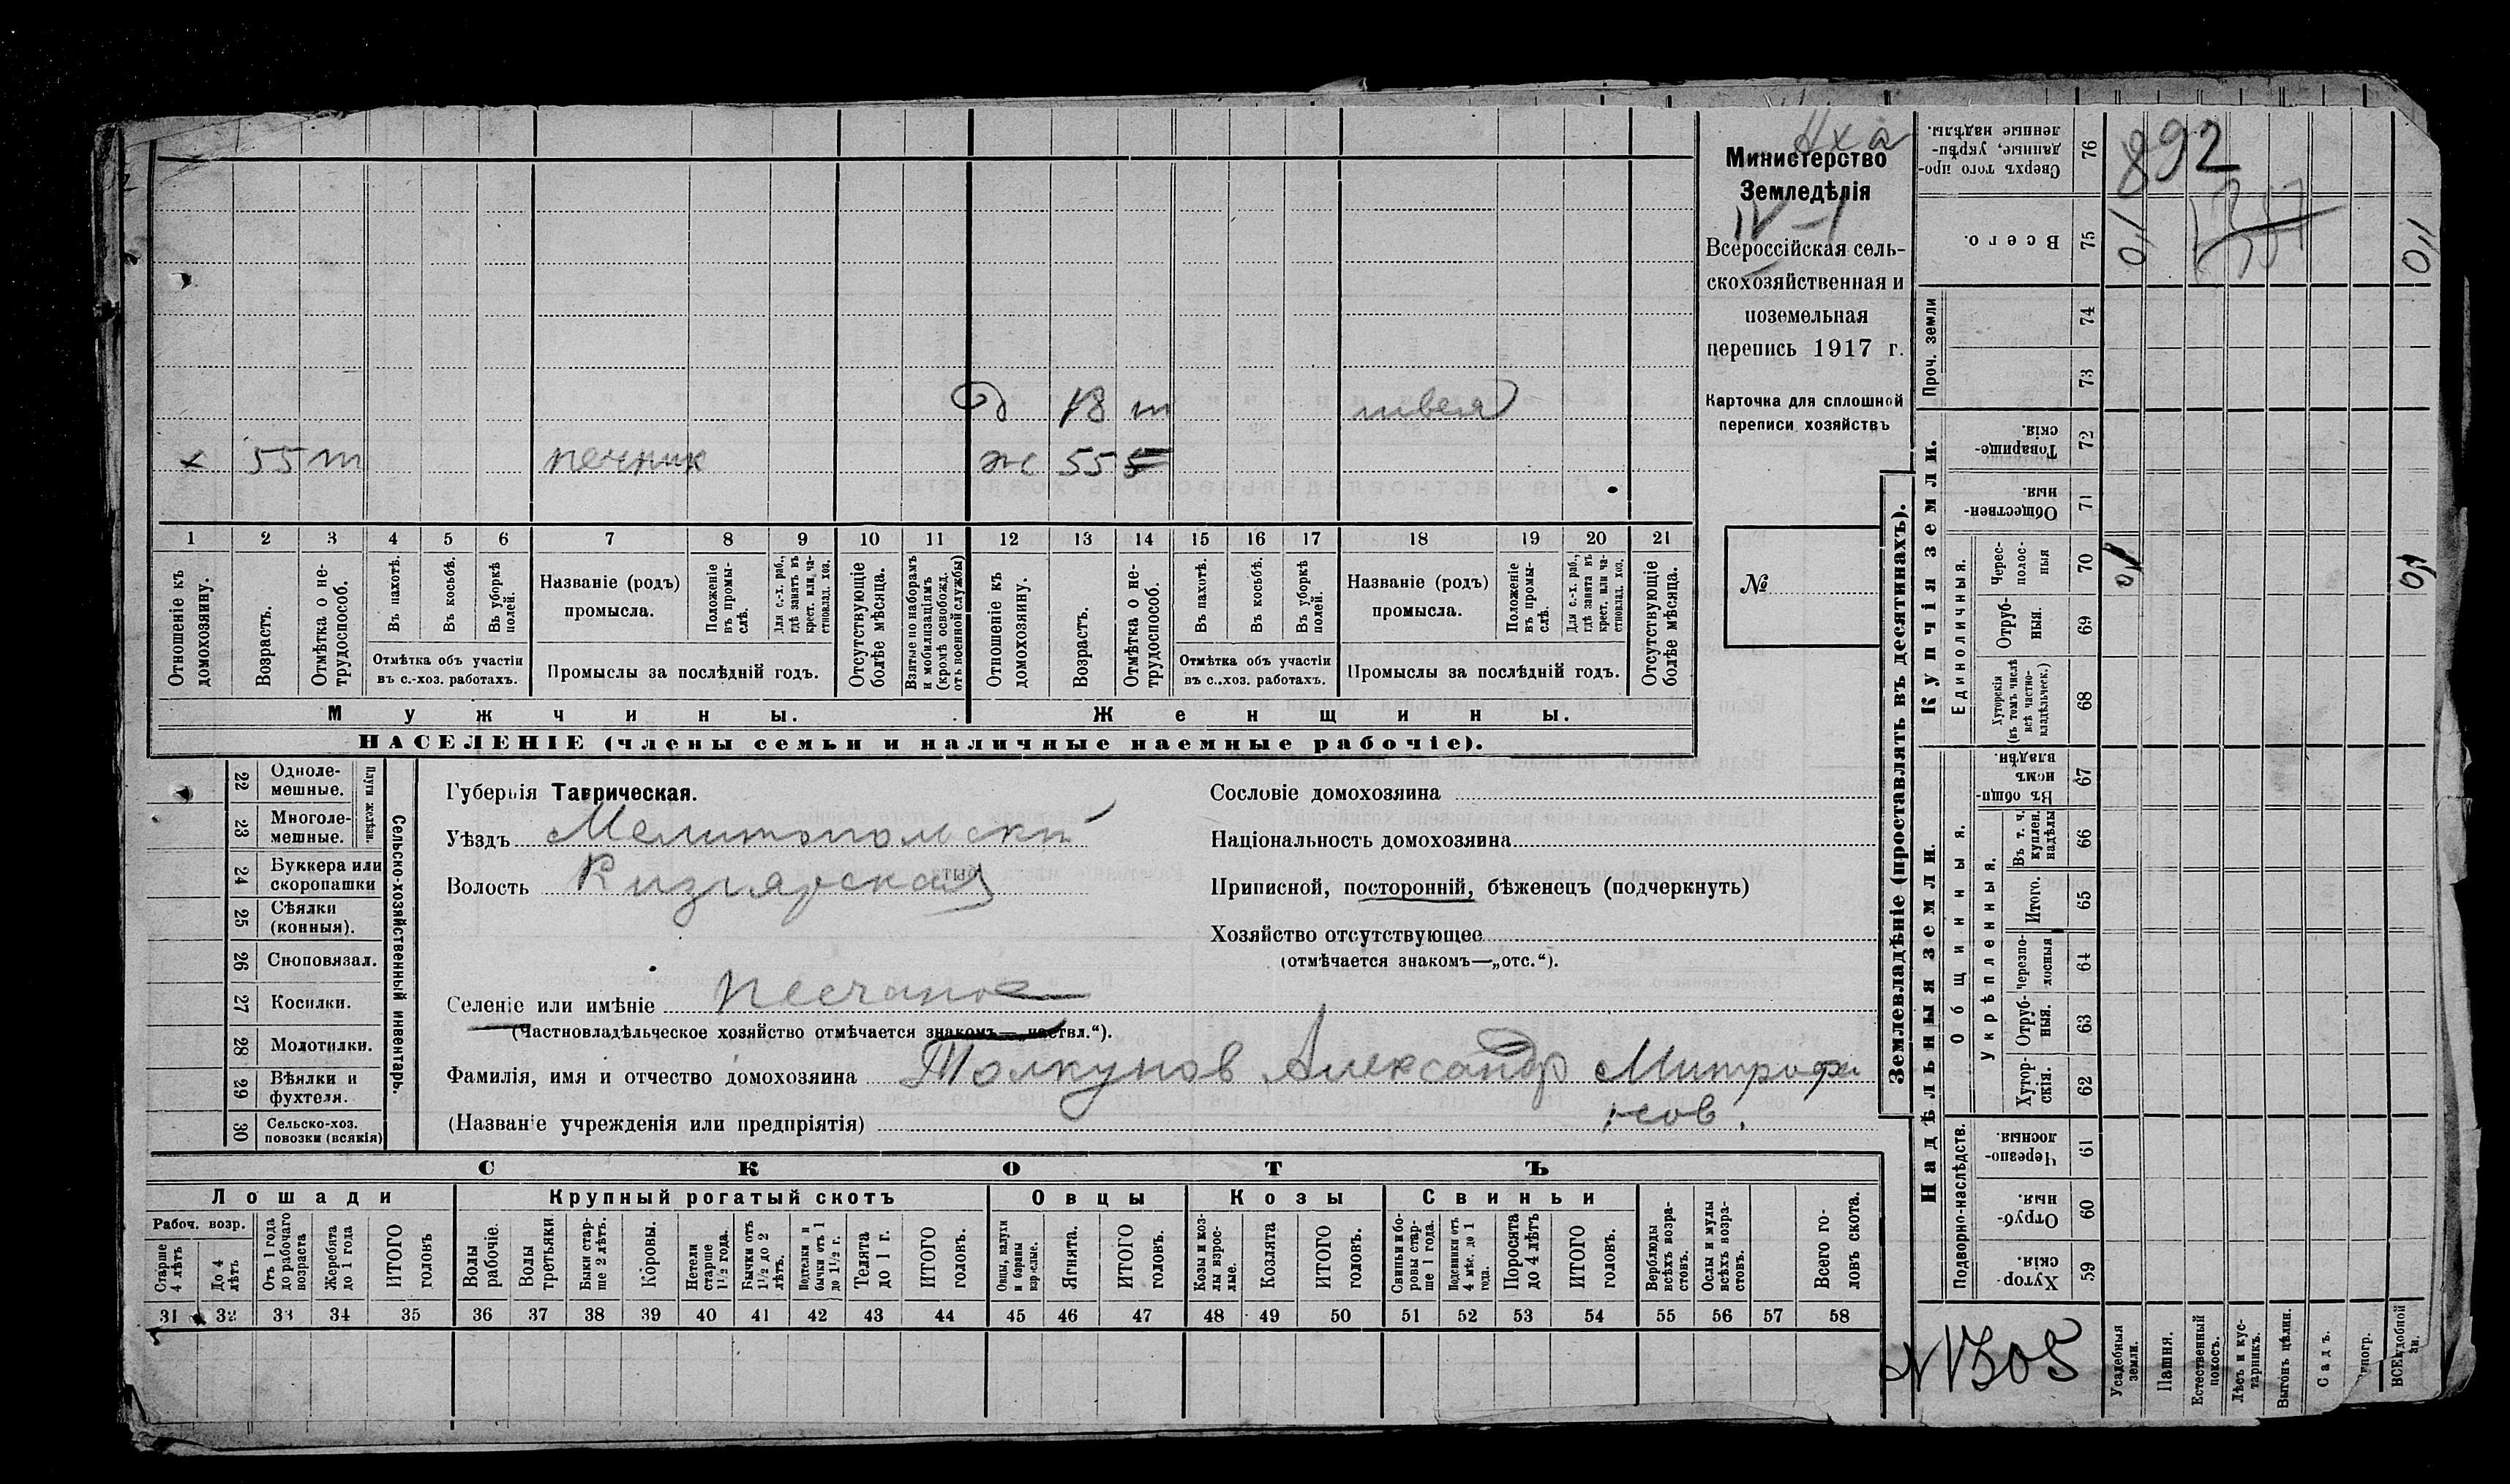 Министерство
Земледѣлія
IV-I
Всероссійская сель-
скохозяйственная и
поземельная
перепись 1917 г.
Карточка для сплошной
переписи хозяйствъ
№
д 18 т швея
х 55 т печник ж 55
1 2 3 4 5 6 7 8 9 10 11 12 13 14 15 16 17 18 19 20 21
Отношеніе къ домохозяину.
Возрастъ.
Отмѣтка о не-трудоспособ.
Въ пахотѣ.
Въ косьбѣ.
Въ уборкѣ полей.
Отмѣтка объ участіи
въ с.-хоз. работахъ.
Названіе (родъ)
промысла.
Положеніе въ промы-слѣ.
Для с.-х. раб., гдѣ занятъ въ крест. или ча-стновлад. хоз.
Промыслы за послѣдній годъ.
Отсутствующіе болѣе мѣсяца.
Взятые по наборамъ и мобилизаціямъ (кромѣ освобожд. отъ военной службы)
Отношеніе къ домохозяину.
Возрастъ.
Отмѣтка о не-трудоспособ.
Въ пахотѣ.
Въ косьбѣ.
Въ уборкѣ полей.
Отмѣтка объ участіи
въ с..хоз. работахъ.
Названіе (родъ)
промысла.
Положеніе въ промы-слѣ.
Для с.-х. раб., гдѣ занятъ въ крест. или ча-стновлад. хоз.
Промыслы за послѣдній годъ.
Отсутствующіе болѣе мѣсяца.
Мужчины.
Женщины.
НАСЕЛЕНІЕ (члены семьи и наличные наемные рабочіе).
22 Одноле-мешные.
23 Многоле-мешные.
Плуги желѣзн.
24 Буккера или скоропашки
25 Сѣялки (конныя).
26 Сноповязал.
27 Косилки.
28 Молотилки.
29 Вѣялки и фухтеля.
30 Сельско-хоз. повозки (всякія)
Сельско-хозяйственный инвентарь.
Губернія Таврическая.
Уѣздъ Мелитопольскій
Волость Кизиярская
Селеніе или имѣніе Песчаное
(Частновладѣльческое хозяйство отмѣчается знакомъ—„частвл.“).
Фамилія, имя и отчество домохозяина Толкунов Александр Митрофа
нов.
(Названіе учрежденія или предпріятія)
Сословіе домохозяина
Національность домохозяина
Приписной, посторонній, бѣженец (подчеркнуть)
Хозяйство отсутствующее
(отмѣчается знакомъ—„отс.“).
СКОТЪ
Лошади
Крупный рогатый скотъ
Овцы
Козы
Свиньи
Рабоч. возр.
Старше 4 лѣтъ
До 4 лѣтъ
Отъ 1 года до рабочаго возраста
Жеребята до 1 года
ИТОГО головъ
Волы рабочіе.
Волы третьяки
Быки стар-ше 2 лѣтъ.
Коровы.
Нетели старше 1½ года.
Бычки отъ 1½ до 2 лѣтъ.
Подтелки и бычки отъ 1 до 1½ г.
Телята до 1 г.
ИТОГО головъ.
Овцы, валухи и бараны взрослые.
Ягнята.
ИТОГО головъ.
Козы и коз-лы взрос-лые.
Козлята
ИТОГО головъ.
Свиньи и бо-ровы стар-ше 1 года.
Подсвинки отъ 4 мѣс. до 1 года.
Поросята до 4 лѣтъ
ИТОГО головъ.
Верблюды всѣхъ возра-стовъ.
Ослы и мулы всѣхъ возра-стовъ.
Всего го-ловъ скота.
31 32 33 34 35 36 37 38 39 40 41 42 43 44 45 46 47 48 49 50 51 52 53 54 55 56 57 58
Землевладѣніе (проставлять въ десятинахъ).
Купчія земли.
Надѣльныя земли.
Сверхъ того про-данные, укрѣп-ленные надѣлы. 76
892
Всего. 75
Проч. земли
74
73
Товарище-скія. 72
Обществен-ныя. 71
Единоличныя.
Черес-полос-ныя 70
Отруб-ныя. 69
Хуторскія (въ томъ числѣ всѣ частно-владѣльческ.) 68
Общинныя.
Въ общин-номъ владѣн. 67
Укрѣпленныя.
Въ т. ч. куплен. надѣлы 66
Итого. 65
Черезпо-лосныя 64
Отруб-ныя. 63
Хутор-скія. 62
Подворно-наслѣдств.
Черезпо-лосныя. 61
Отруб-ныя. 60
Хутор-скія. 59
N 1305
Усадебныя земли.
Пашня.
Естественный покосъ.
Лѣсъ и кус-тарникъ.
Выгонъ цѣлин.
Садъ.